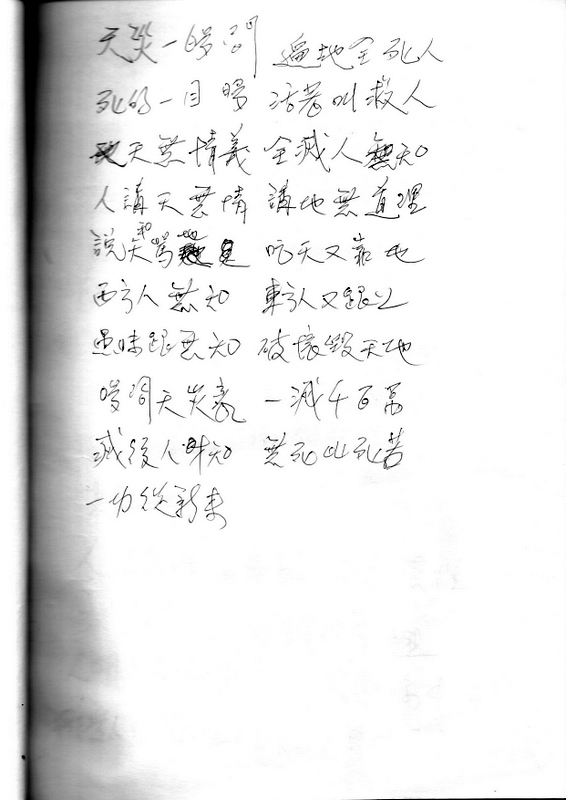 天災一瞬間 遍地全死人
死的一目瞬 活著叫救人
天無情義 全滅人無知
人講天無情 講地無道理
說天罵地 吃天又靠地
西方人無知 東方人又跟上
愚昧跟無知 破壞毀天地
瞬間天災來 一滅千百萬
滅後人才知 無死叫死苦
一切從新來